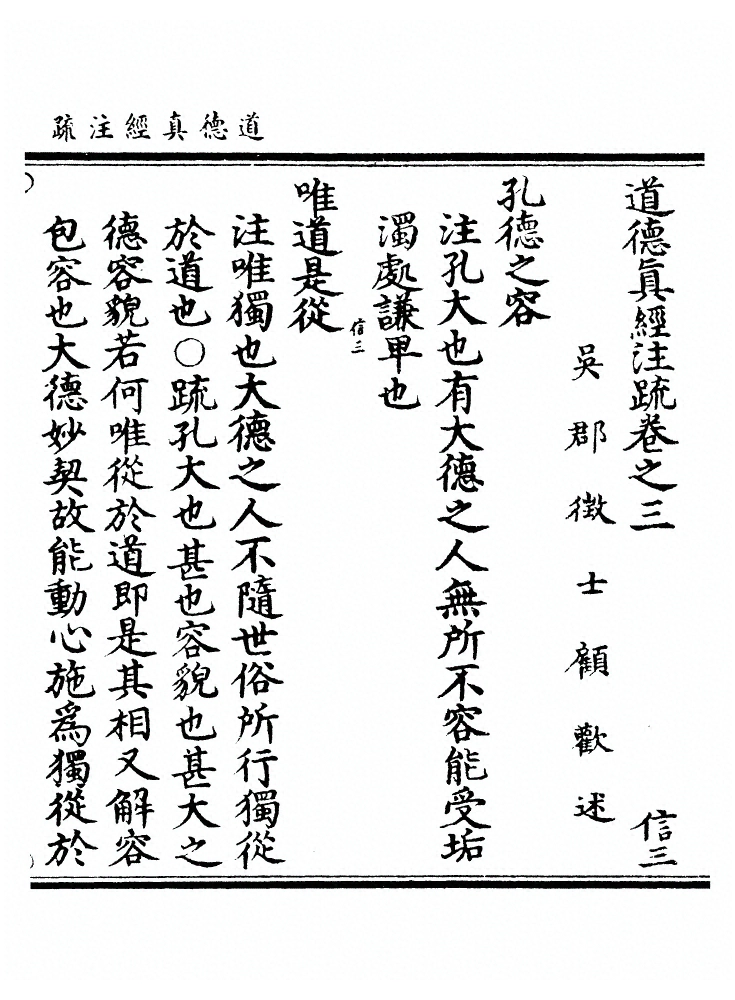 道德真經注疏
道德眞經注疏卷之三　信三
吳郡徵士顧歡述
孔德之容
注孔大也有大德之人無所不容能受垢
濁處謙甲也
信三
唯道是從
注唯獨也大德之人不隨世俗所行獨從
於道也○疏孔大也甚也容貌也甚大之
德容貌若何唯從於道即是其相又解容
包容也大德妙契故能動心施爲獨從於